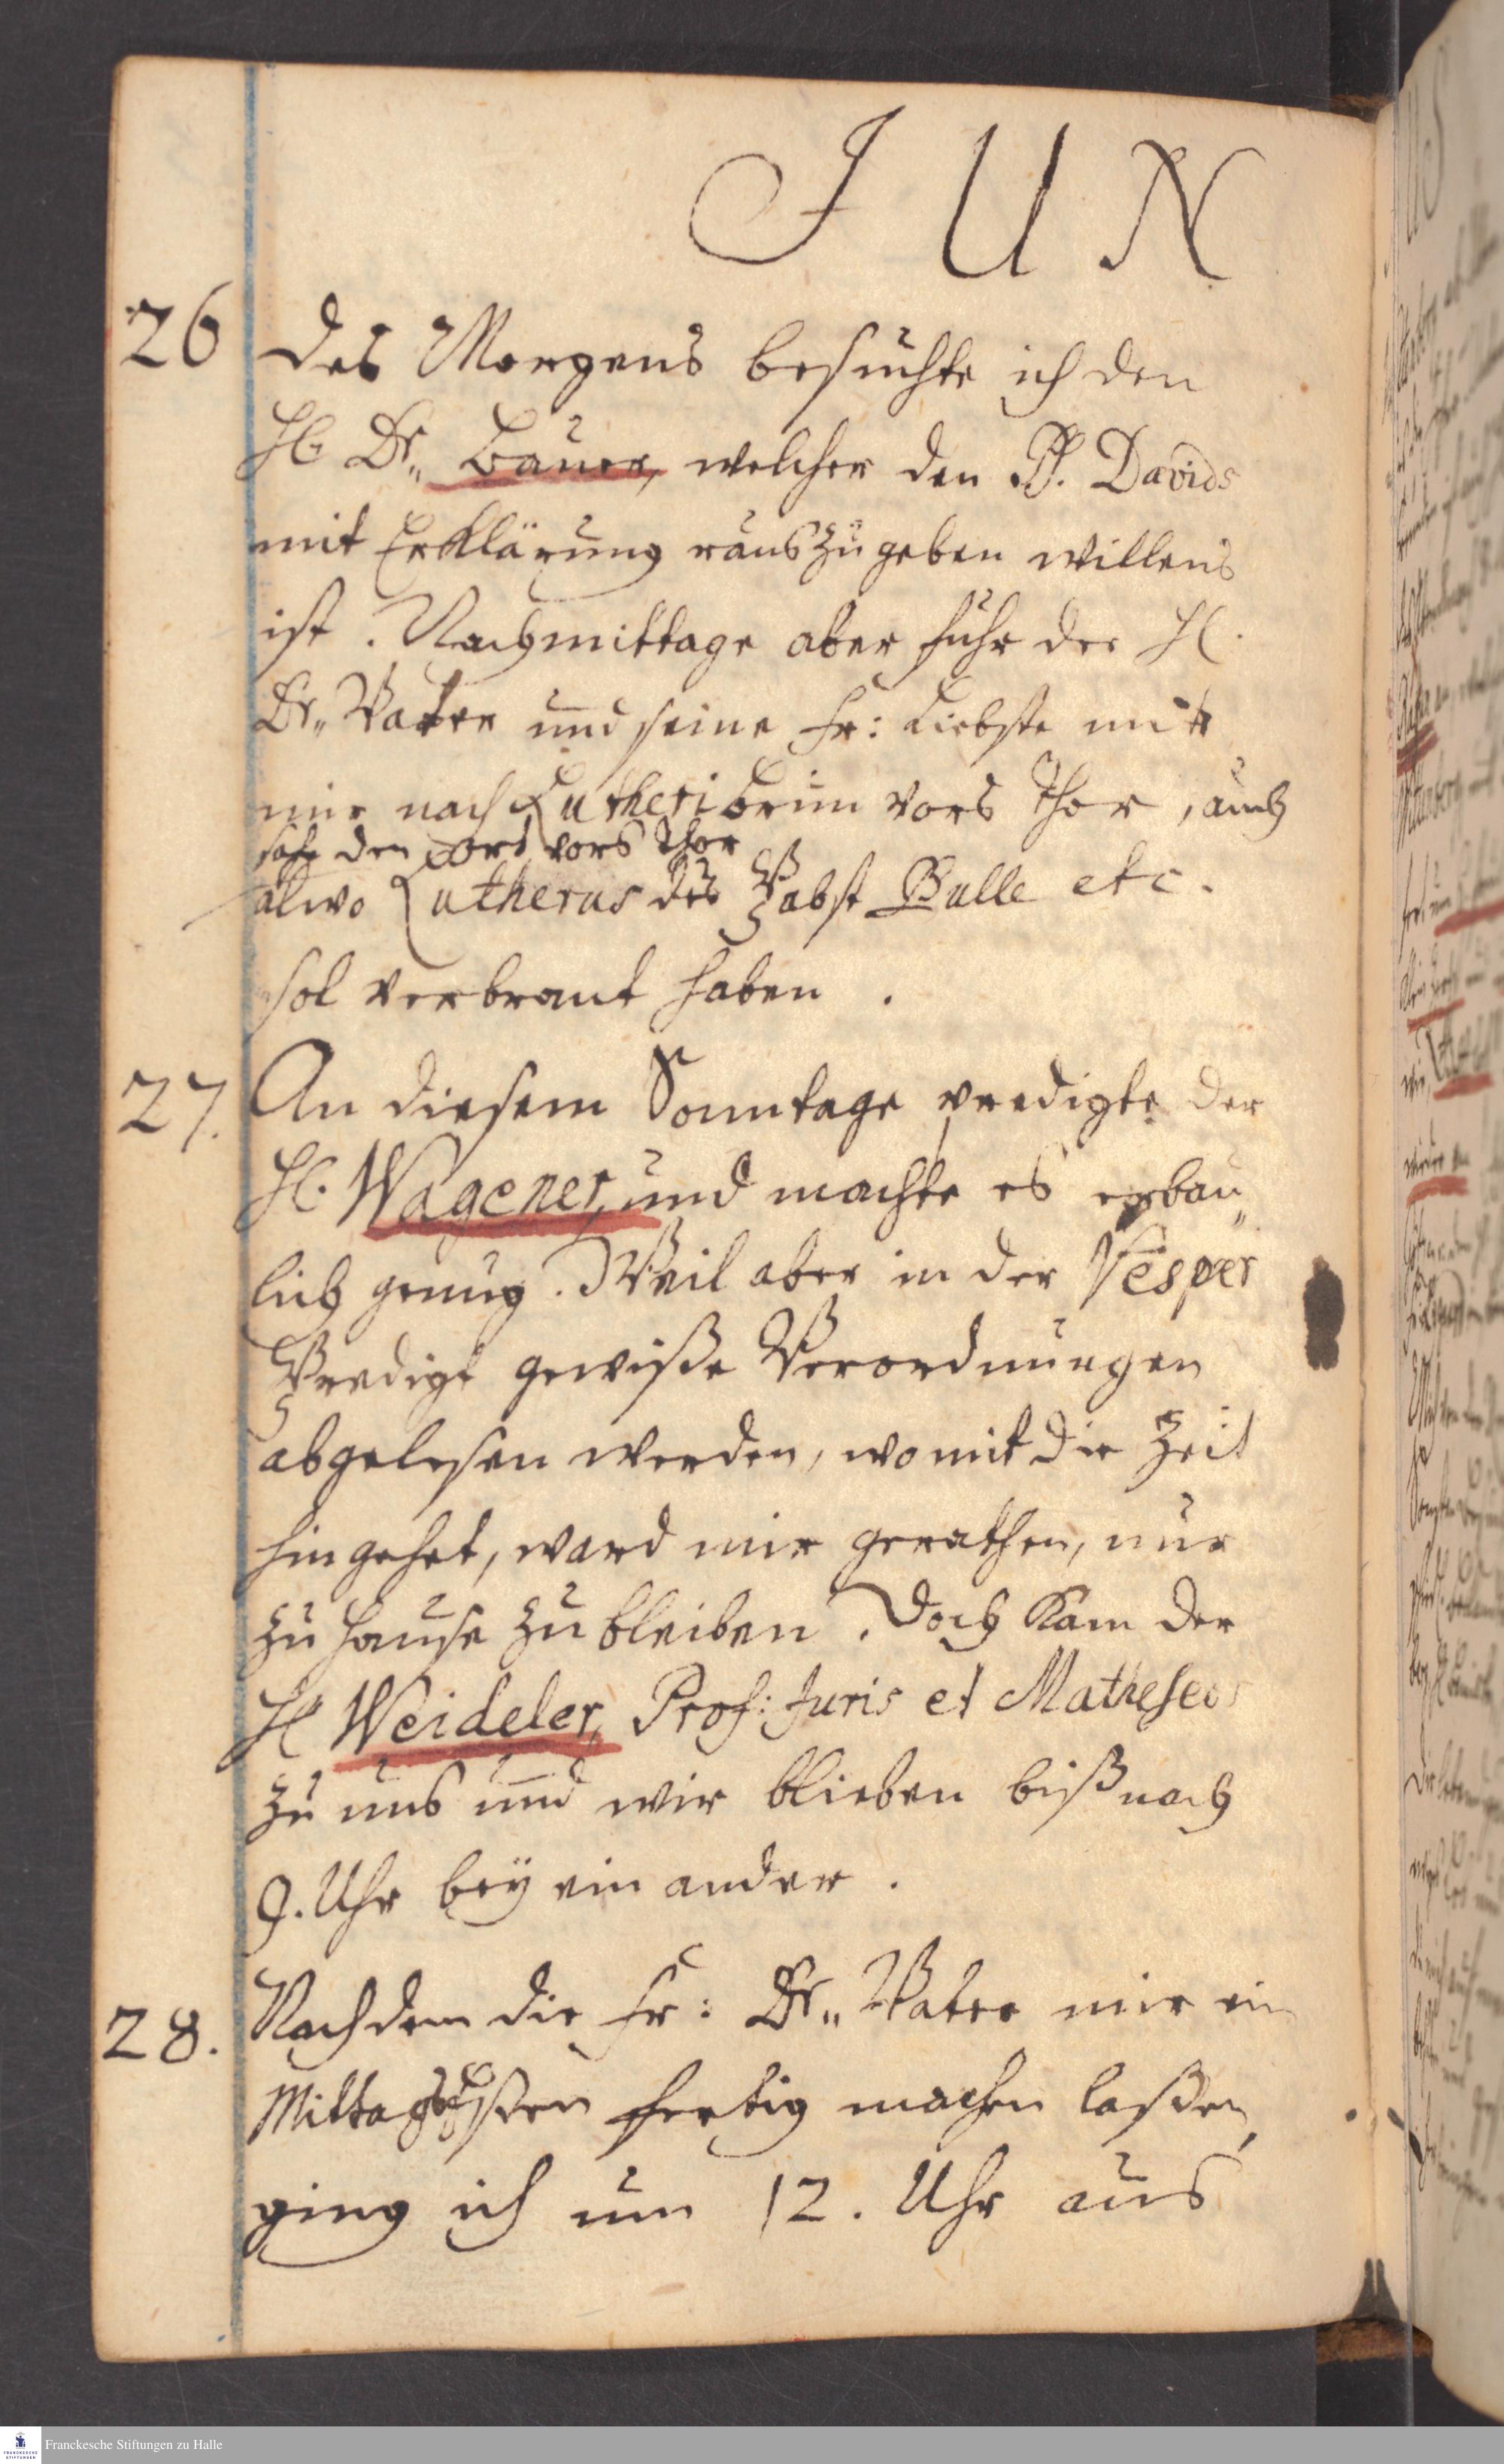 JUN
26 Des Morgens besuchte ich den
H. Dr. Bauer, welcher den Ps. Davids
mit Erklärung rauszugeben willens
ist. Nachmittage aber fuhr der H.
Dr. Vater und seine Fr: Liebste mit
mir nach Lutheribrun vors Thor, auch
sahe den Ort vors Thor
alwo Lutherus des Pabst Bulle etc.
sol verbrant haben.
27. An diesem Sonntage predigte der
H. Wagener, und machte es erbau„
lich genug. Weil aber in der Vesper
Predigt gewiße Verordnungen
abgelesen werden, womit die Zeit
hingehet, ward mir gerathen, nur
zu Hause zu bleiben. Doch kam der
H Weideler, Prof: Juris et Matheseos
zu uns und wir blieben biß nach
9. Uhr bey einander.
28. Nachdem die Fr: Dr. Vater mir ein
Mittags Eßen fertig machen laßen,
ging ich um 12. Uhr aus
Franckesche Stiftungen zu Halle